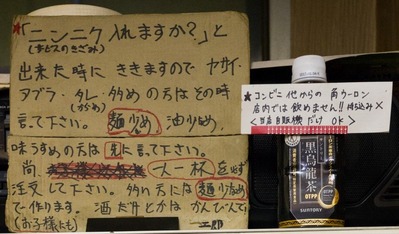 ★「ニンニク入れますか?」と
(生ビスのきざみ)
出来た時に ききますので ヤサイ・
アブラ・タレ・多めの方はその時
(からめ)
言って下さい。麺少め、油少め、
味うすめの方は 先に言って下さい。
尚、大一杯を必ず
注文して下さい。多い人には 麺少なめ
で作ります。酒だけとかは かんべんで
(お子様にも)
★コンビニ他からの 黒ウーロン
店内では飲めません!! 持ち込み×
<当店自販機だけ OK>
黒烏龍茶
OTPP
SUNTORY